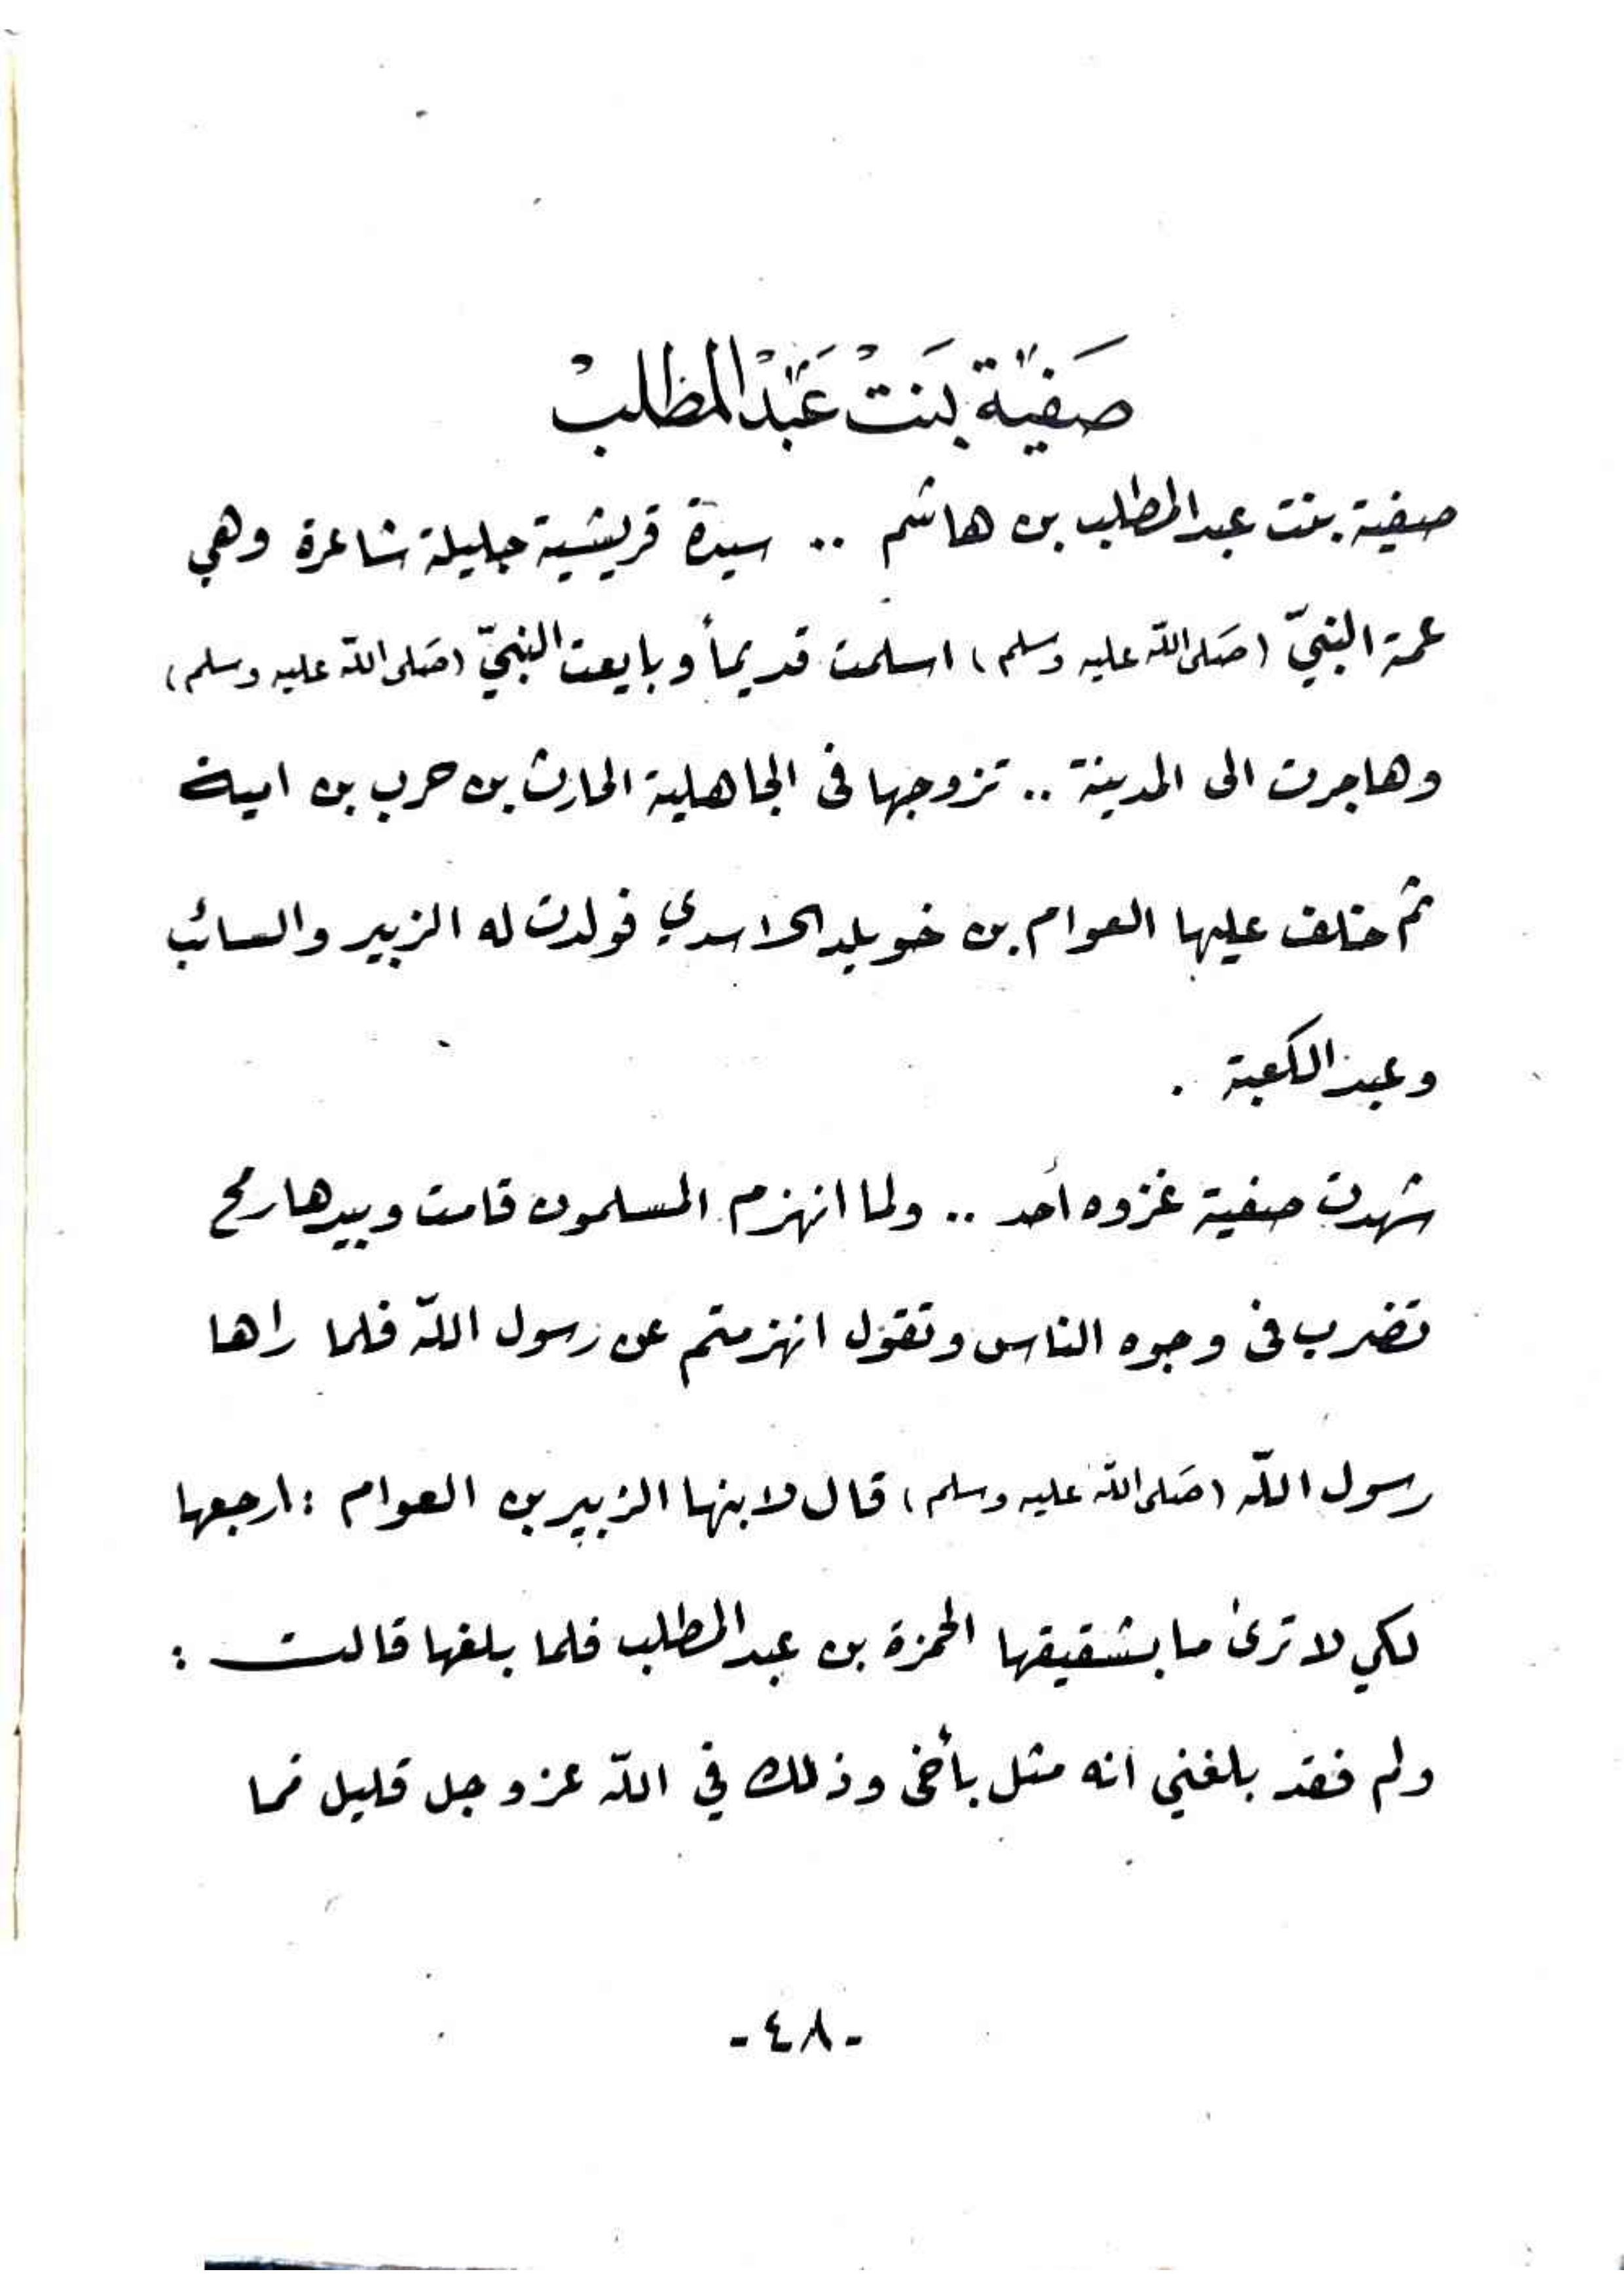 صَفيَّة بَنتْ عَبْدالمطلبْ
صفية بنت عبدالمطلب بن هاشم .. سيدة قريشية جليلة شاعرة وهي
عمة النبيّ (صَلى اللّه عليه وسلم) اسلمت قديماً وبايعت النبيّ (صَلى اللّه عليه وسلم)
وهاجرت الى المدينة .. تزوجها فى الجاهلية الحارث بن حرب بن امية
ثم خلف عليها العوام بن خويلد الاسدي فولدت له الزبير والسائب
وعبد الكعبة .
شهدت صفية غزوه أحد .. ولما انهزم المسلمون قامت وبيدها رمح
تضرب فى وجوه الناس وتقول انهزمتم عن رسول اللّه فلما راها
رسول اللّه (صَلى اللّه عليه وسلم) قال لابنها الزبير بن العوام : ارجعها
لكي لا ترى ما بشقيقها الحمزة بن عبدالمطلب فلما بلغها قالت :
ولم فقد بلغني انه مثل بأخى وذلك في اللّه عز وجل قليل فما
-٤٨-